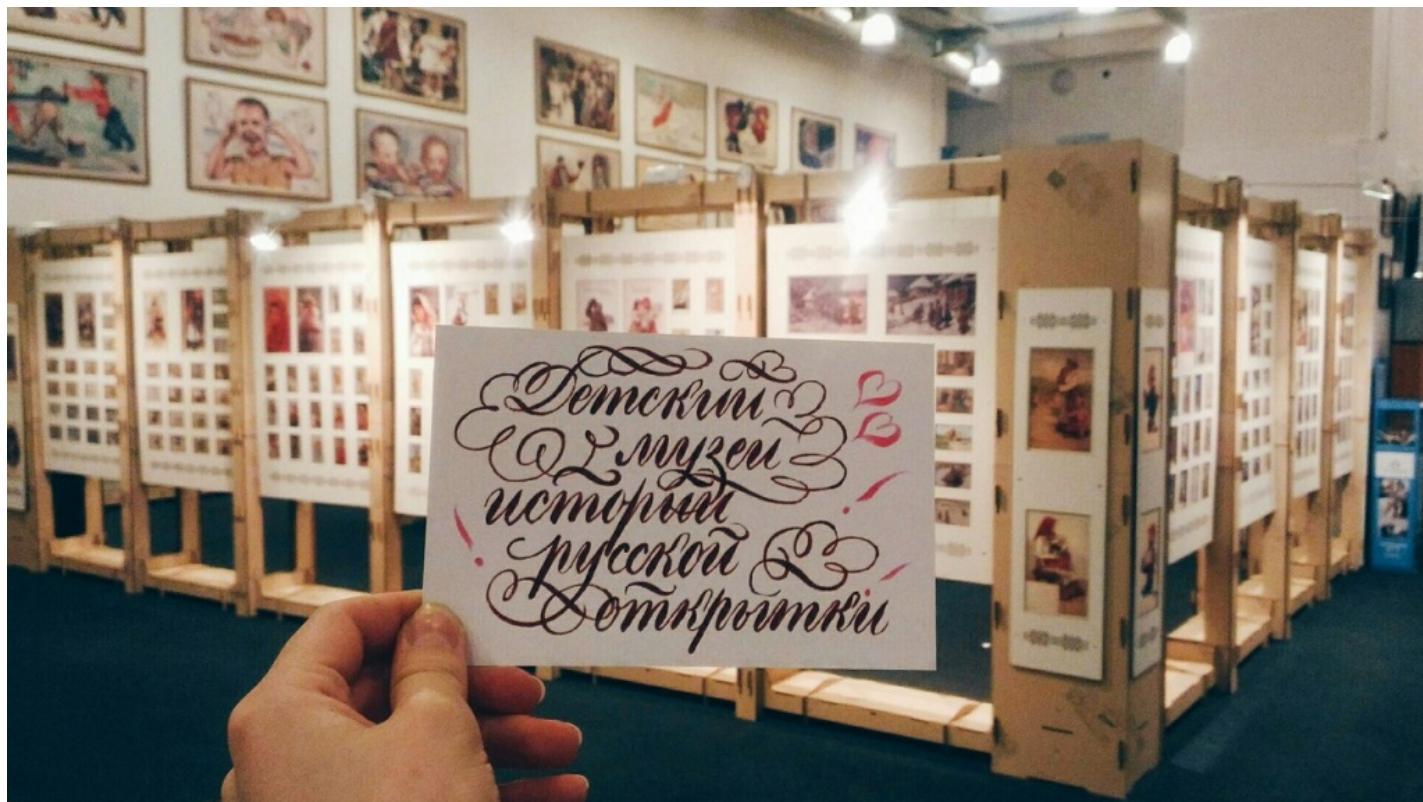 Детский
музей
истории
русской
открытки